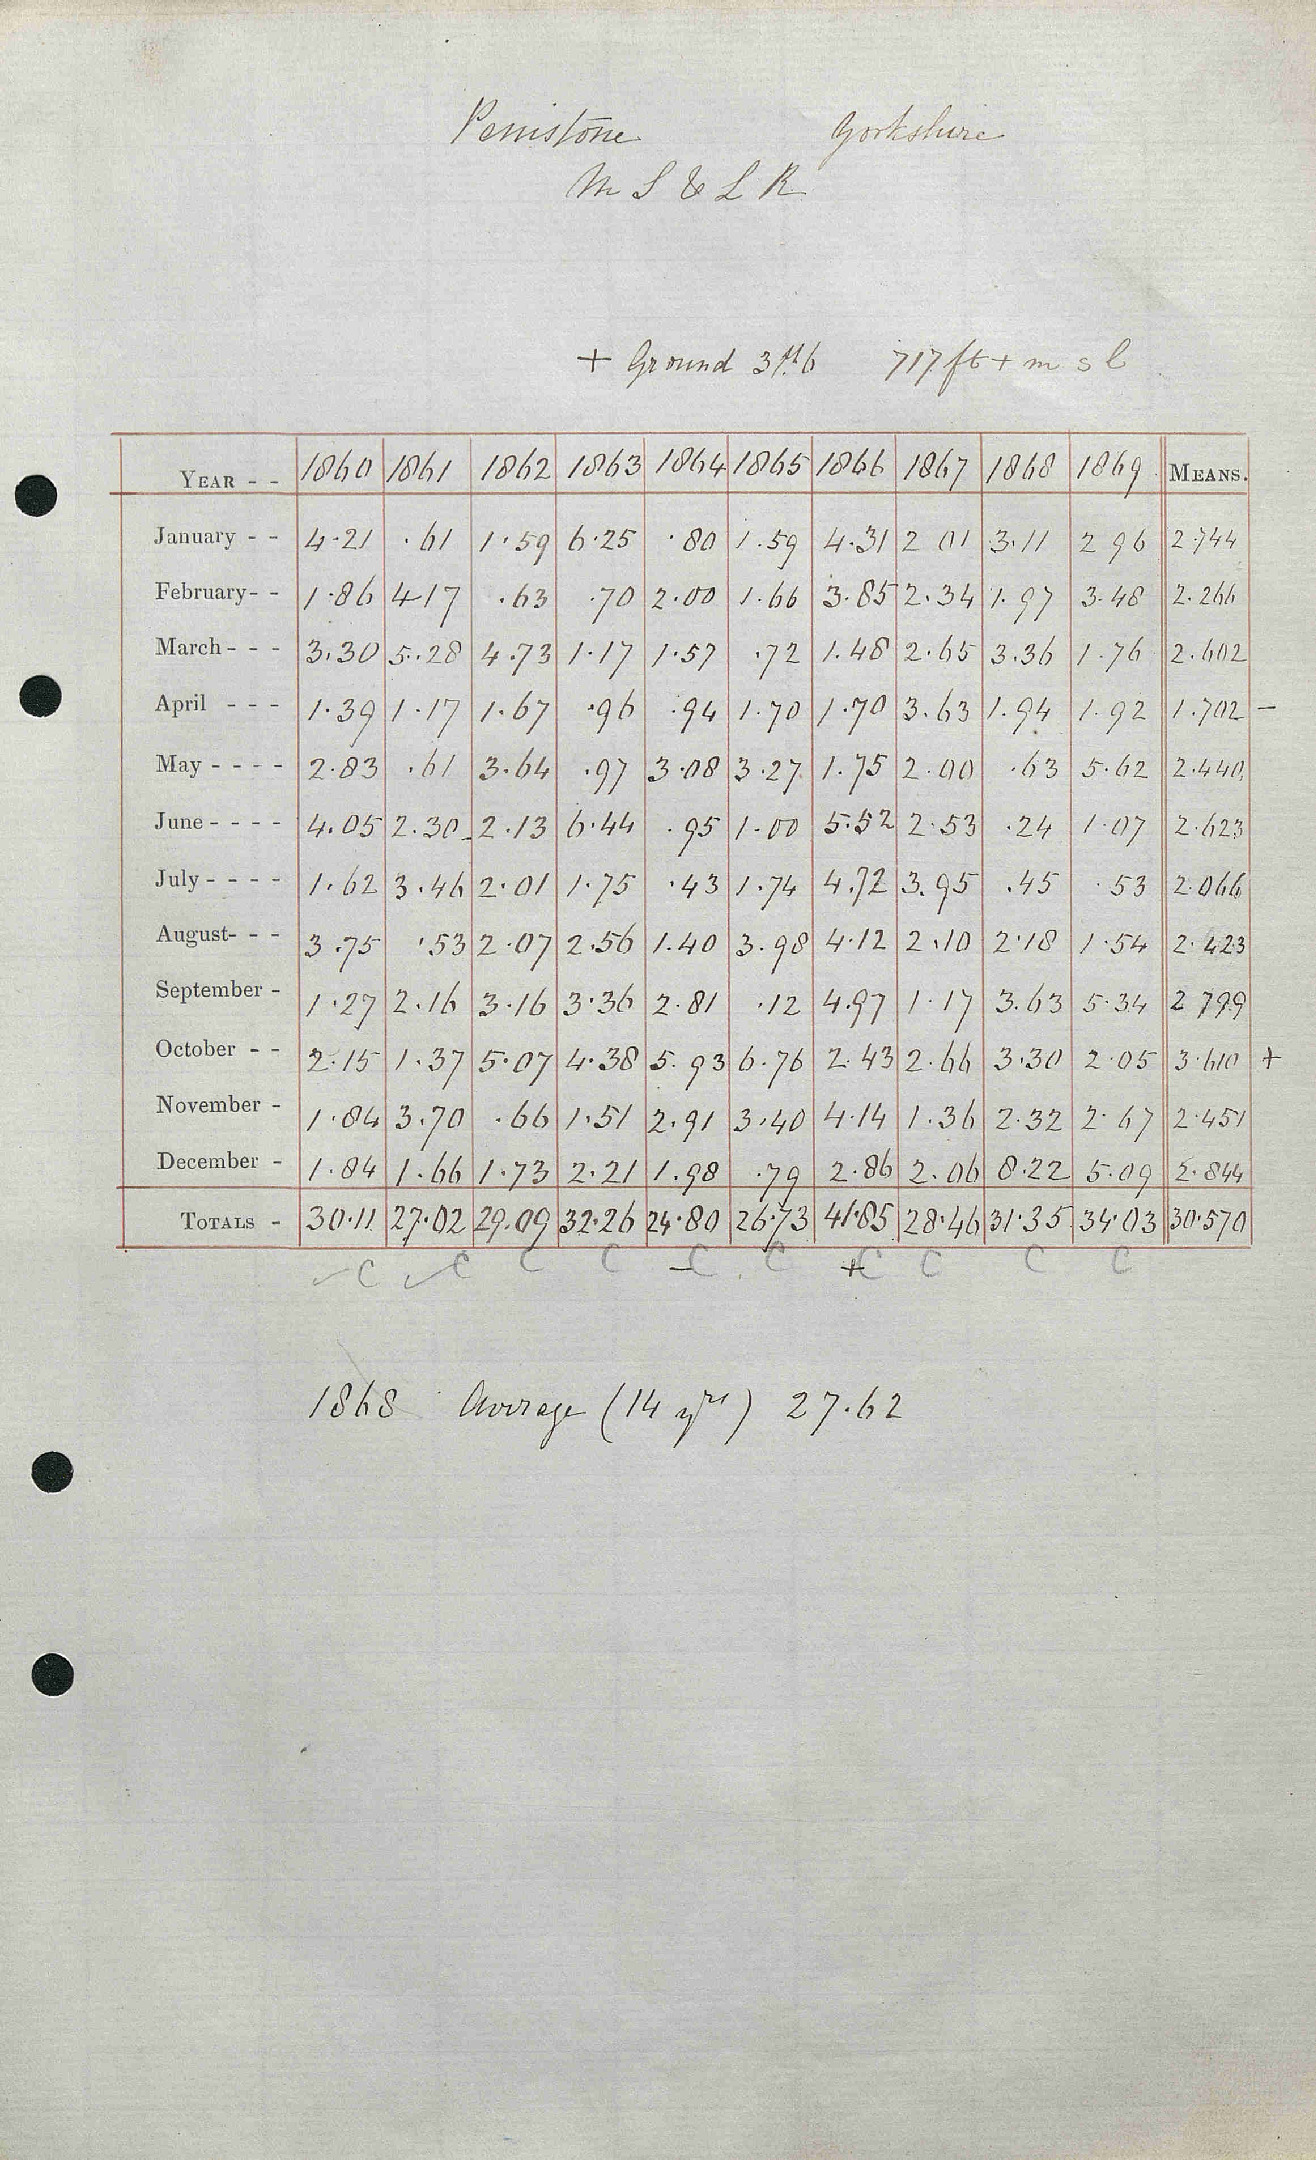 Penistone Yorkshire
M S & L R
+ Ground 3ft 6 717 ft + m s l
YEAR - - 1860 1861 1862 1863 1864 1865 1866 1867 1868 1869 MEANS.
January - - 4.21 .61 1.59 6.25 .80 1.59 4.31 2 01 3.11 2 96 2.744
February - - 1.86 4.17 .63 .70 2.00 1.66 3.85 2.34 1.97 3.48 2.266
March - - - 3.30 5.28 4.73 1.17 1.57 .72 1.48 2.65 3.36 1.76 2.602
April - - - 1.39 1.17 1.67 .96 .94 1.70 1.70 3.63 1.94 1.92 1.702 -
May - - - - 2.83 .61 3.64 .97 3.08 3.27 1.75 2.00 .63 5.62 2.440
June - - - - 4.05 2.30 2.13 6.44 .95 1.00 5.52 2.53 .24 1.07 2.623
July - - - - 1.62 3.46 2.01 1.75 .43 1.74 4.72 3.95 .45 .53 2.066
August - - - 3.75 .53 2.07 2.56 1.40 3.98 4.12 2.10 2.18 1.54 2.423
September - 1.27 2.16 3.16 3.36 2.81 .12 4.97 1.17 3.63 5.34 2 799
October - - 2.15 1.37 5.07 4.38 5.93 6.76 2.43 2.66 3.30 2.05 3.610 +
November - 1.84 3.70 .66 1.51 2.91 3.40 4.14 1.36 2.32 2.67 2.451
December - 1.84 1.66 1.73 2.21 1.98 .79 2.86 2.06 8.22 5.09 2.844
TOTALS - 30.11 27.02 29.09 32.26 24.80 26.73 41.85 28.46 31.35 34.03 30.570
✓ C ✓ C C C - C C + C C C C
1868 Average (14 yrs) 27.62